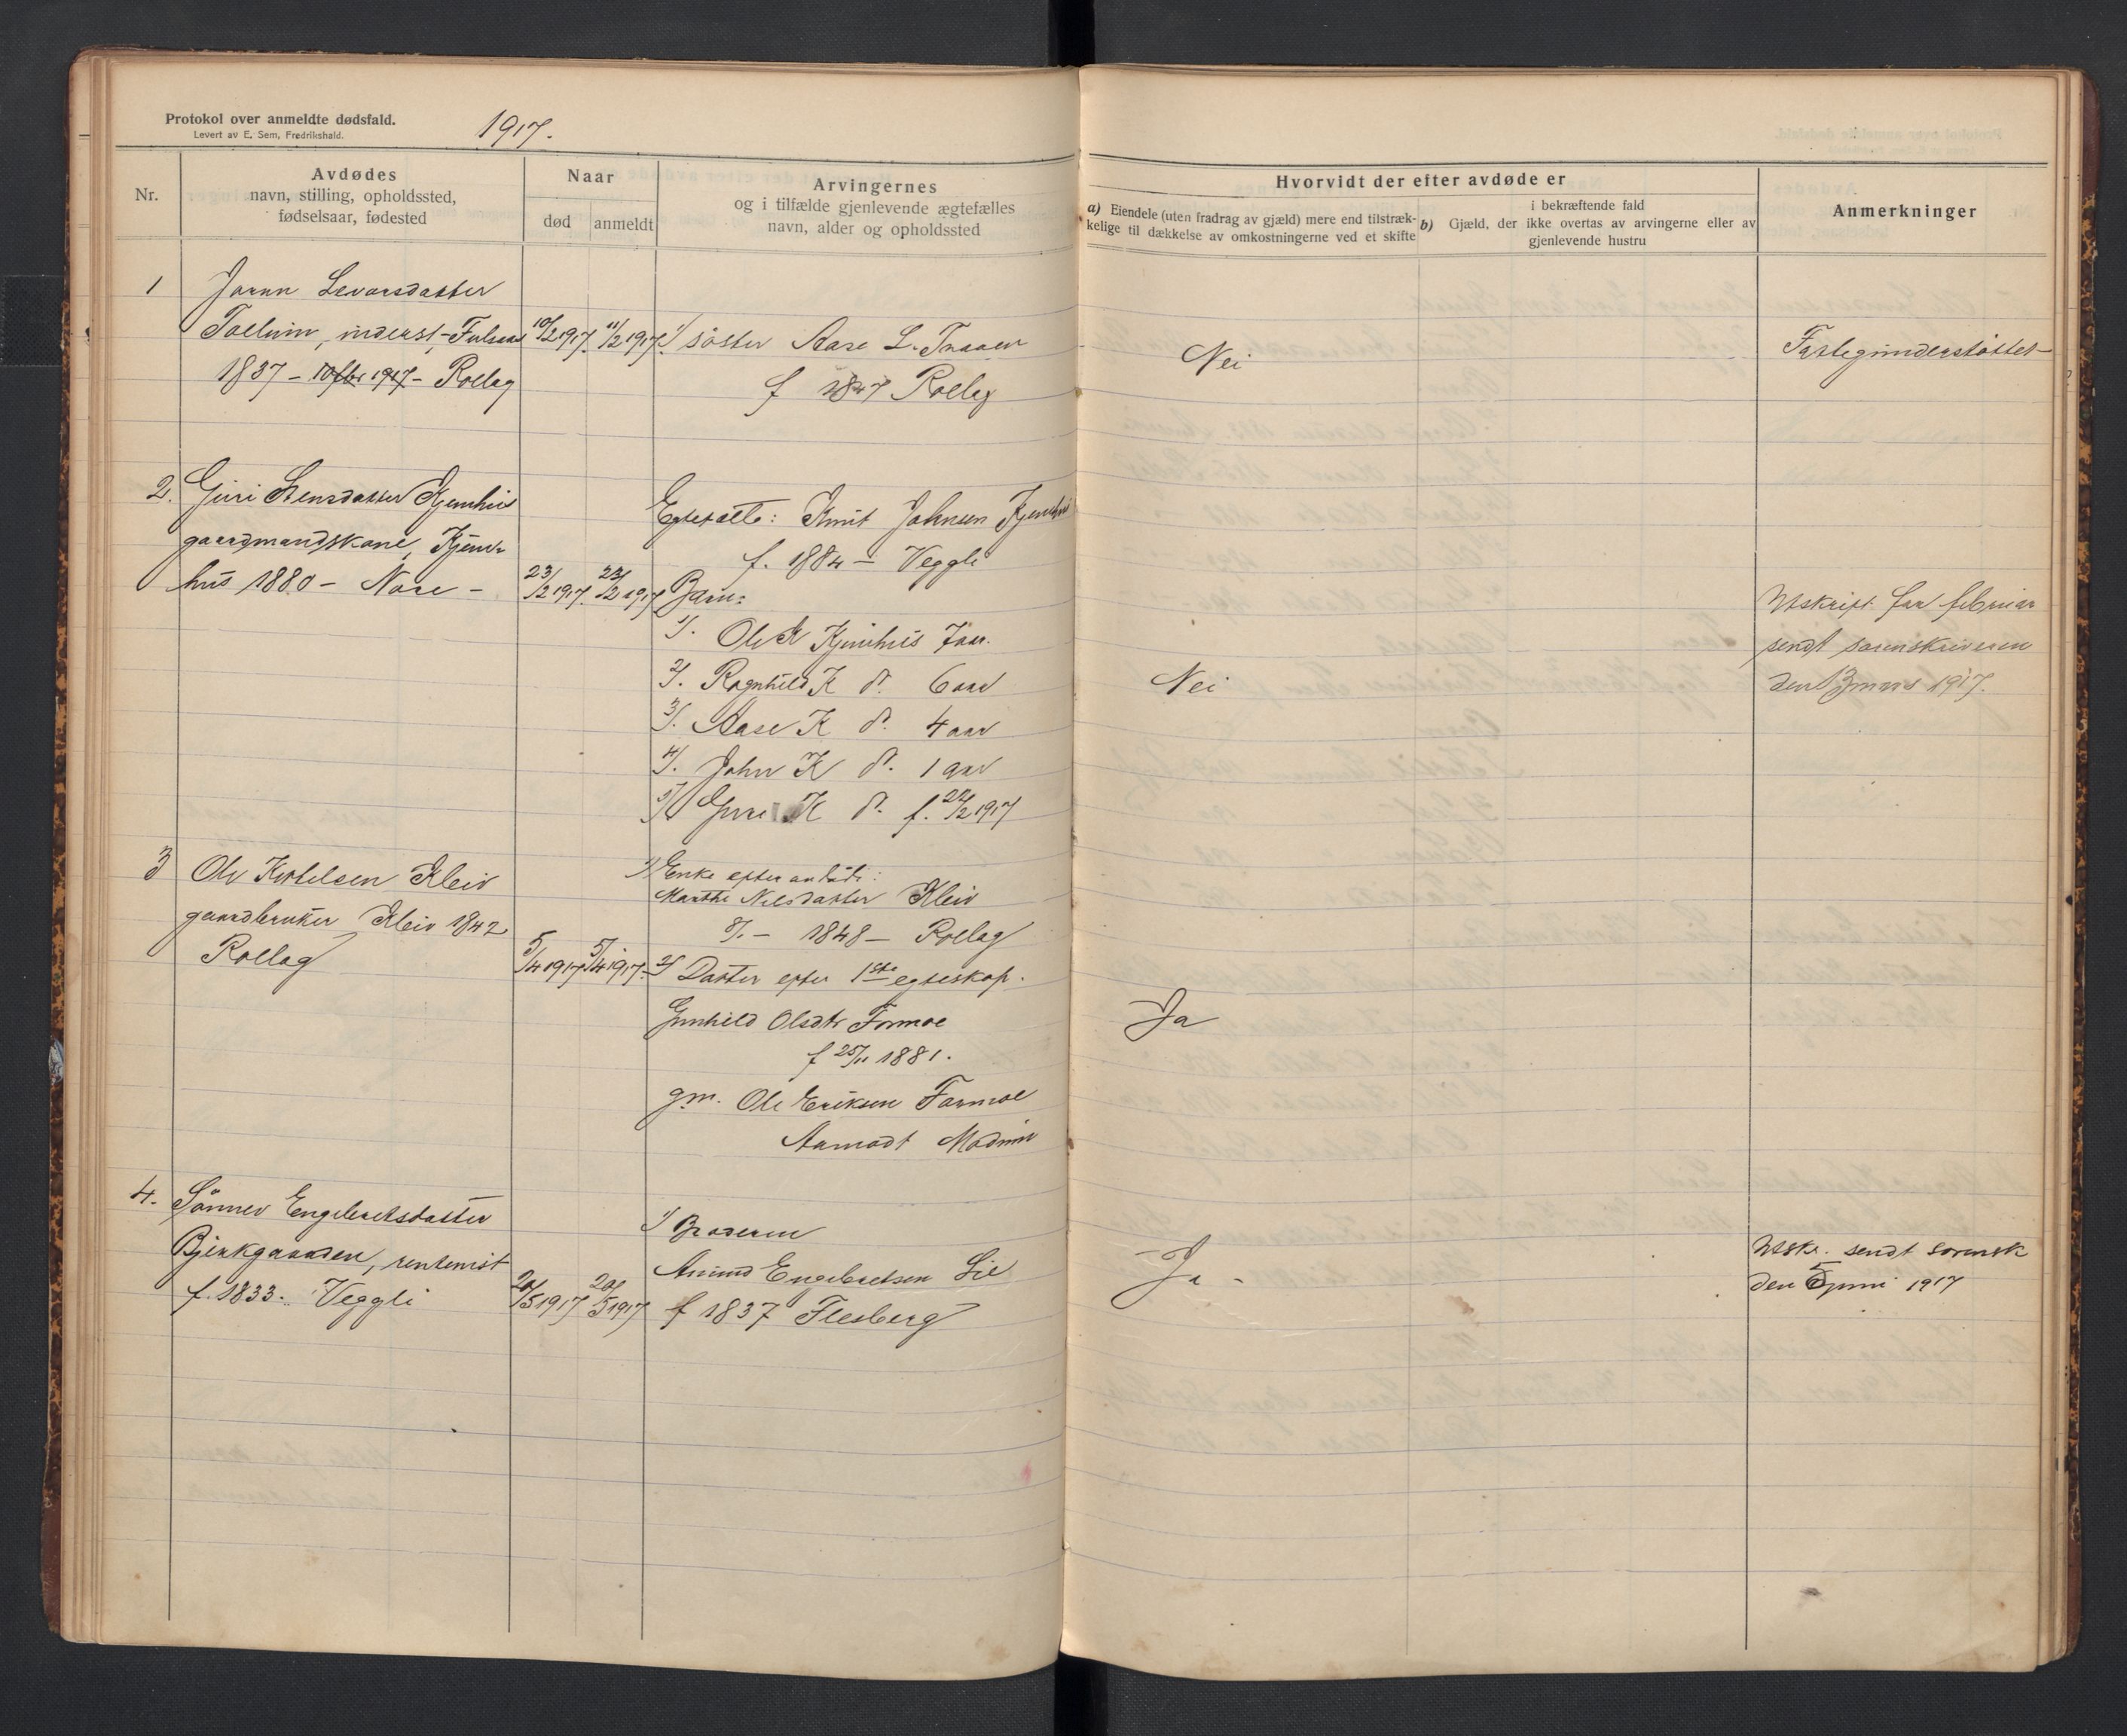 Protokol over anmeldte dødsfald.
Levert av E. Sem, Fredrikshald.
1917.
Nr.
Avdødes
navn, stilling, opholdssted,
fødselsaar, fødested
Naar
død
anmeldt
Arvingernes
og i tilfælde gjenlevende ægtefælles
navn, alder og opholdssted
Hvorvidt der efter avdøde er
a) Eiendele (uten fradrag av gjæld) mere end tilstræk-
kelige til dækkelse av omkostningerne ved et skifte
i bekræftende fald
b) Gjæld, der ikke overtas av arvingerne eller av
gjenlevende hustru
Anmerkninger
1
Jorun Levorsdatter
inderst
1837 - 10 fbr 1917 - Rollag
10/2 1917. 11/2 1917.
1/ søster Aase L. Traaen
f 1847 Rollag
Nei
Fattigunderstøttet
2. Guri Stensdatter Kjemhus
gaardmandskone, Kjem-
hus 1880 - Nore -
23/2 1917. 23/2 1917
Egtefælle: Knut Johnsen Kjemhus
f. 1884 - Veggli
Barn:
1/. Ole K Kjemhus 7 aar.
2/. Ragnhild K d. 6 aar
3/. Aase K d. 4 aar
4/. John K d. 1 aar
5/ Guri K d. f. 22/2 1917
Nei
Utskrift for februar
sendt sorenskriveren
den 3 mars 1917.
3 Ole Kittelsen Kleiv
gaardbruker Kleiv 1842
Rollag
5/4 1917 5/4 1917.
1/ Enke efter avdøde:
Marthe Nilsdatter Kleiv
f. - 1848 - Rollag
2/ Datter efter 1ste egteskap.
Gunhild Olsdtr Formoe
f 25/11 1881.
gm. Ole Eriksen Formoe
Aamodt Modum
Ja
4. Sønnev Engebretsdatter
Bjerkgaarden, rentenist
f. 1833. Veggli
20/5 1917 20/5 1917
1/ Broderen
Amund Engebretsen Lie
f 1837 Flesberg
- Ja -
Utskr. sendt sorensk
den 5 juni 1917